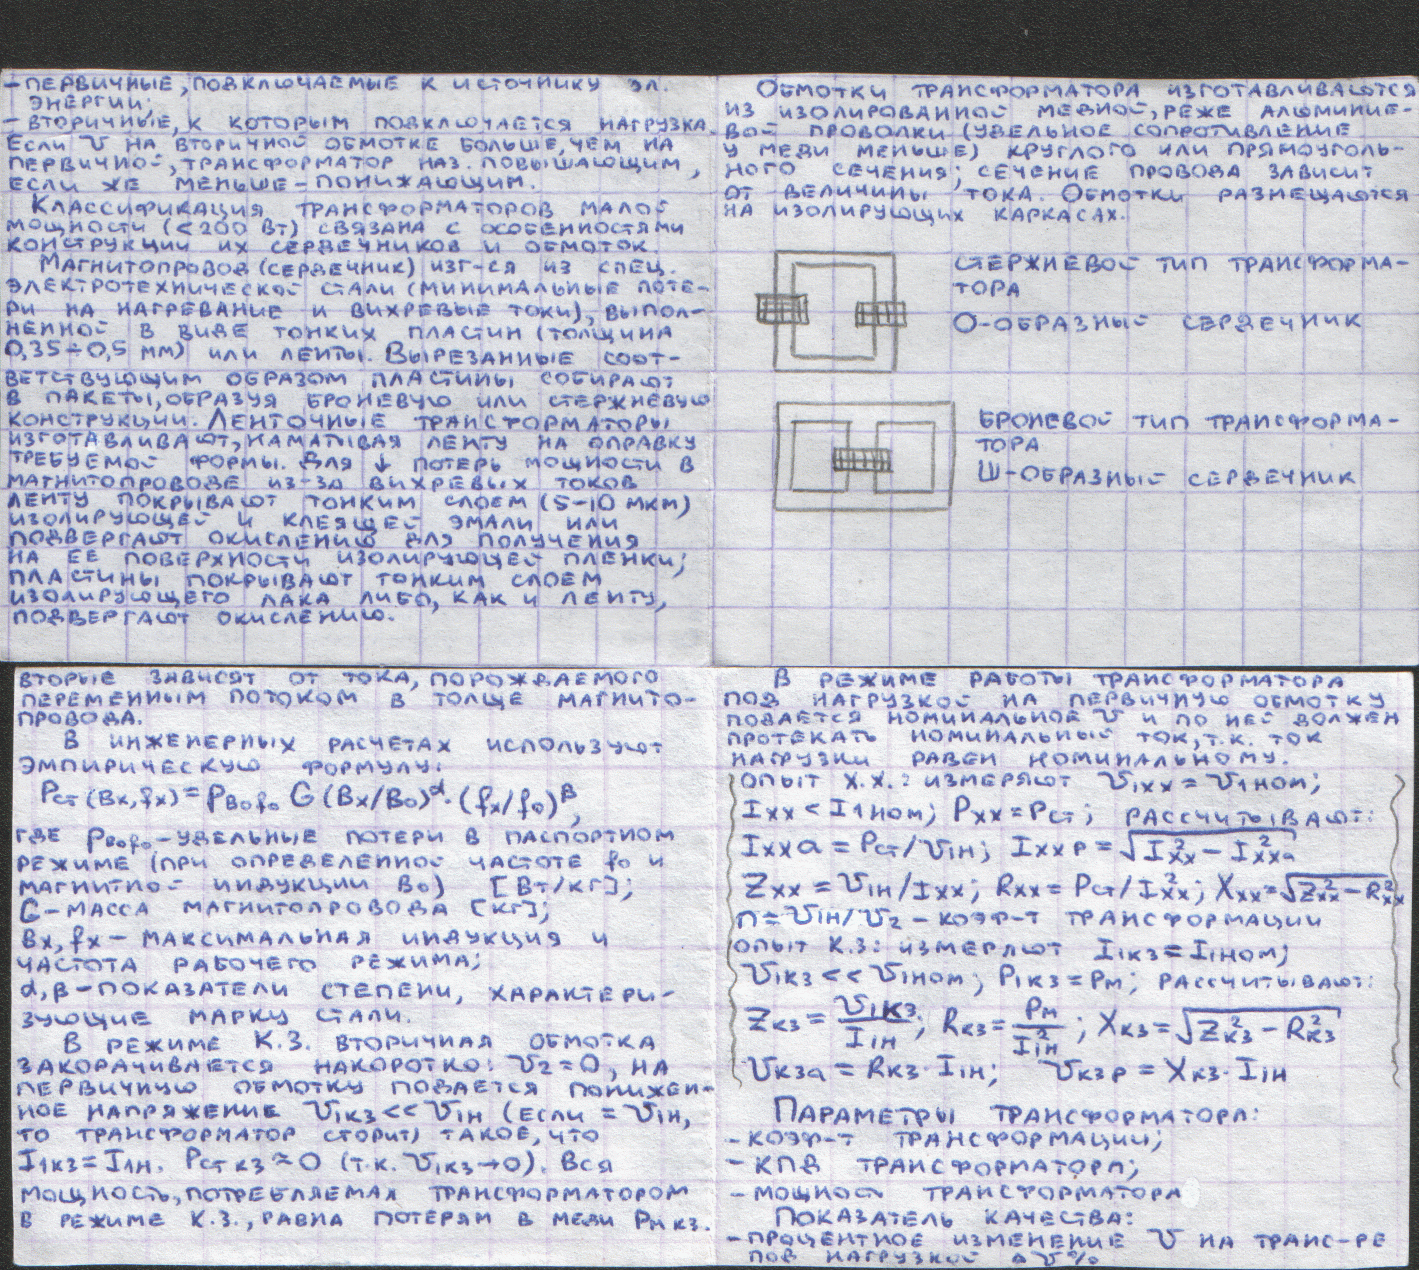 - ПЕРВИЧНЫЕ, ПОДКЛЮЧАЕМЫЕ К ИСТОЧНИКУ ЭЛ.
ЭНЕРГИИ;
- ВТОРИЧНЫЕ, К КОТОРЫМ ПОДКЛЮЧАЕТСЯ НАГРУЗКА.
ЕСЛИ U НА ВТОРИЧНОЙ ОБМОТКЕ БОЛЬШЕ, ЧЕМ НА
ПЕРВИЧНОЙ, ТРАНСФОРМАТОР НАЗ. ПОВЫШАЮЩИМ,
ЕСЛИ ЖЕ МЕНЬШЕ – ПОНИЖАЮЩИМ.
КЛАССИФИКАЦИЯ ТРАНСФОРМАТОРОВ МАЛОЙ
МОЩНОСТИ (<200 ВТ) СВЯЗАНА С ОСОБЕННОСТЯМИ
КОНСТРУКЦИИ ИХ СЕРДЕЧНИКОВ И ОБМОТОК.
МАГНИТОПРОВОД (СЕРДЕЧНИК) ИЗГ-СЯ ИЗ СПЕЦ.
ЭЛЕКТРОТЕХНИЧЕСКОЙ СТАЛИ (МИНИМАЛЬНЫЕ ПОТЕ-
РИ НА НАГРЕВАНИЕ И ВИХРЕВЫЕ ТОКИ), ВЫПОЛ-
НЕННОЙ В ВИДЕ ТОНКИХ ПЛАСТИН (ТОЛЩИНА
0,35÷0,5 ММ) ИЛИ ЛЕНТЫ. ВЫРЕЗАННЫЕ СООТ-
ВЕТСТВУЮЩИМ ОБРАЗОМ ПЛАСТИНЫ СОБИРАЮТ
В ПАКЕТЫ, ОБРАЗУЯ БРОНЕВУЮ ИЛИ СТЕРЖНЕВУЮ
КОНСТРУКЦИИ. ЛЕНТОЧНЫЕ ТРАНСФОРМАТОРЫ
ИЗГОТАВЛИВАЮТ, НАМАТЫВАЯ ЛЕНТУ НА ОПРАВКУ
ТРЕБУЕМОЙ ФОРМЫ. ДЛЯ ↓ ПОТЕРЬ МОЩНОСТИ В
МАГНИТОПРОВОДЕ ИЗ-ЗА ВИХРЕВЫХ ТОКОВ
ЛЕНТУ ПОКРЫВАЮТ ТОНКИМ СЛОЕМ (5-10 МКМ)
ИЗОЛИРУЮЩЕЙ И КЛЕЯЩЕЙ ЭМАЛИ ИЛИ
ПОДВЕРГАЮТ ОКИСЛЕНИЮ ДЛЯ ПОЛУЧЕНИЯ
НА ЕЕ ПОВЕРХНОСТИ ИЗОЛИРУЮЩЕЙ ПЛЕНКИ;
ПЛАСТИНЫ ПОКРЫВАЮТ ТОНКИМ СЛОЕМ
ИЗОЛИРУЮЩЕГО ЛАКА ЛИБО, КАК И ЛЕНТУ,
ПОДВЕРГАЮТ ОКИСЛЕНИЮ.
ОБМОТКИ ТРАНСФОРМАТОРА ИЗГОТАВЛИВАЮТСЯ
ИЗ ИЗОЛИРОВАННОЙ МЕДНОЙ, РЕЖЕ АЛЮМИНИЕ-
ВОЙ ПРОВОЛКИ (УДЕЛЬНОЕ СОПРОТИВЛЕНИЕ
У МЕДИ МЕНЬШЕ) КРУГЛОГО ИЛИ ПРЯМОУГОЛЬ-
НОГО СЕЧЕНИЯ; СЕЧЕНИЕ ПРОВОДА ЗАВИСИТ
ОТ ВЕЛИЧИНЫ ТОКА. ОБМОТКИ РАЗМЕЩАЮТСЯ
НА ИЗОЛИРУЮЩИХ КАРКАСАХ.
СТЕРЖНЕВОЙ ТИП ТРАНСФОРМА-
ТОРА
О-ОБРАЗНЫЙ СЕРДЕЧНИК
БРОНЕВОЙ ТИП ТРАНСФОРМА-
ТОРА
Ш-ОБРАЗНЫЙ СЕРДЕЧНИК
ВТОРЫЕ ЗАВИСЯТ ОТ ТОКА, ПОРОЖДАЕМОГО
ПЕРЕМЕННЫМ ПОТОКОМ В ТОЛЩЕ МАГНИТО-
ПРОВОДА.
В ИНЖЕНЕРНЫХ РАСЧЕТАХ ИСПОЛЬЗУЮТ
ЭМПИРИЧЕСКУЮ ФОРМУЛУ:
Pст(Bx,fx)=PB₀f₀ G(Bx/B₀)^α·(fx/f₀)^β,
ГДЕ PB₀f₀ - УДЕЛЬНЫЕ ПОТЕРИ В ПАСПОРТНОМ
РЕЖИМЕ (ПРИ ОПРЕДЕЛЕННОЙ ЧАСТОТЕ f₀ И
МАГНИТНОЙ ИНДУКЦИИ B₀) [ВТ/КГ];
G-МАССА МАГНИТОПРОВОДА [КГ];
Bx, fx – МАКСИМАЛЬНАЯ ИНДУКЦИЯ И
ЧАСТОТА РАБОЧЕГО РЕЖИМА;
α, β – ПОКАЗАТЕЛИ СТЕПЕНИ, ХАРАКТЕРИ-
ЗУЮЩИЕ МАРКУ СТАЛИ.
В РЕЖИМЕ К.З. ВТОРИЧНАЯ ОБМОТКА
ЗАКОРАЧИВАЕТСЯ НАКОРОТКО: U₂=0, НА
ПЕРВИЧНУЮ ОБМОТКУ ПОДАЕТСЯ ПОНИЖЕН-
НОЕ НАПРЯЖЕНИЕ U1КЗ<<U1Н (ЕСЛИ = U1Н,
ТО ТРАНСФОРМАТОР СГОРИТ) ТАКОЕ, ЧТО
I1КЗ=I1Н. PСТ КЗ≈0 (Т.К. U1КЗ→0). ВСЯ
МОЩНОСТЬ, ПОТРЕБЛЯЕМАЯ ТРАНСФОРМАТОРОМ
В РЕЖИМЕ К.З., РАВНА ПОТЕРЯМ В МЕДИ PМ КЗ.
В РЕЖИМЕ РАБОТЫ ТРАНСФОРМАТОРА
ПОД НАГРУЗКОЙ НА ПЕРВИЧНУЮ ОБМОТКУ
ПОДАЕТСЯ НОМИНАЛЬНОЕ U И ПО НЕЙ ДОЛЖЕН
ПРОТЕКАТЬ НОМИНАЛЬНЫЙ ТОК, Т.К. ТОК
НАГРУЗКИ РАВЕН НОМИНАЛЬНОМУ.
ОПЫТ Х.Х.: ИЗМЕРЯЮТ U1ХХ = U1НОМ;
IХХ < I1НОМ; PХХ=PСТ; РАССЧИТЫВАЮТ:
IХХа = PСТ/U1Н; IХХр = √(I²ХХ – I²ХХа)
ZХХ = U1Н/IХХ; RХХ = PСТ/I²ХХ; XХХ=√(Z²ХХ – R²ХХ)
n = U1Н/U₂ – КОЭФ-Т ТРАНСФОРМАЦИИ
ОПЫТ К.З: ИЗМЕРЯЮТ I1КЗ=I1НОМ;
U1КЗ<<U1НОМ; P1КЗ=PМ; РАССЧИТЫВАЮТ:
ZКЗ = U1КЗ/I1Н; RКЗ = PМ/I²1Н; XКЗ=√(Z²КЗ – R²КЗ)
UКЗа = RКЗ·I1Н; UКЗр = XКЗ·I1Н
ПАРАМЕТРЫ ТРАНСФОРМАТОРА:
- КОЭФ-Т ТРАНСФОРМАЦИИ;
- КПД ТРАНСФОРМАТОРА;
- МОЩНОСТЬ ТРАНСФОРМАТОРА
ПОКАЗАТЕЛЬ КАЧЕСТВА:
- ПРОЦЕНТНОЕ ИЗМЕНЕНИЕ U НА ТРАНС-РЕ
ПОД НАГРУЗКОЙ ΔU%